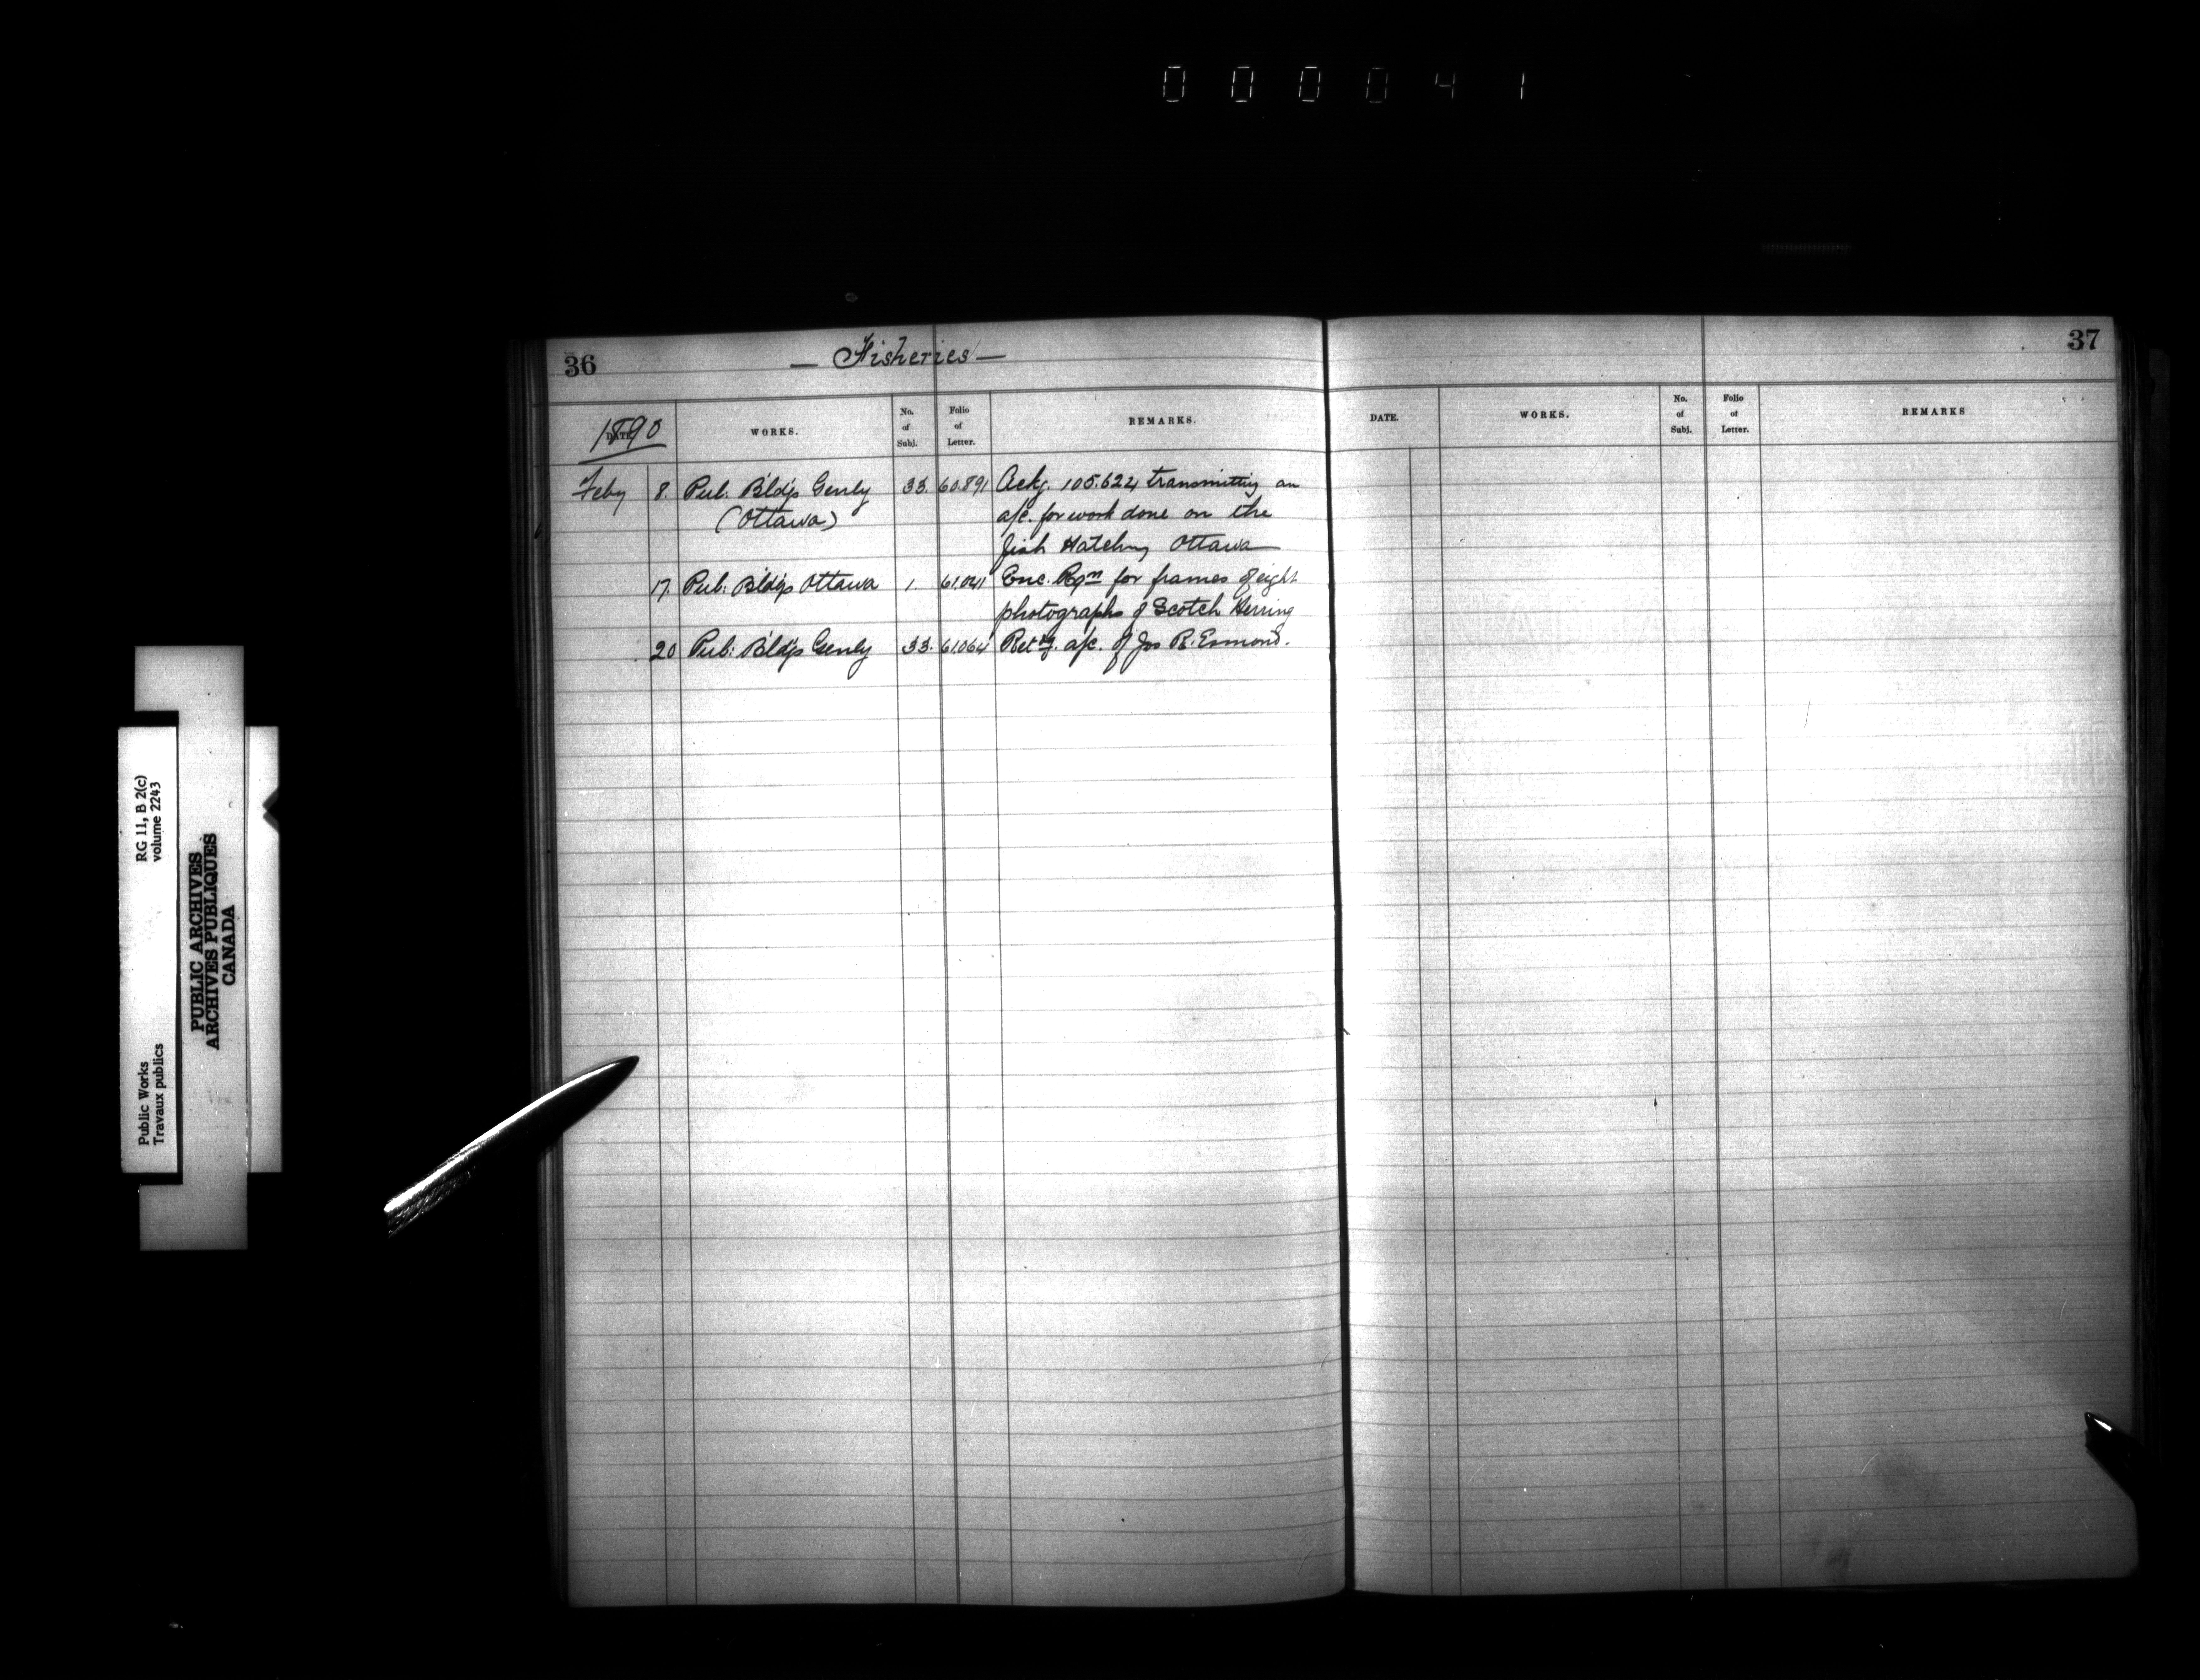 000041
36
— Fisheries —
1890
DATE
WORKS.
No. of Subj.
Folio of Letter.
REMARKS.
Feby 8. Pub. Bldgs Genly 33. 60.891 Ackg. 105.622 transmitting an
(Ottawa) a/c. for work done on the
fish Hatchy Ottawa
17. Pub. Bldgs Ottawa 1. 61.041 Enc. Rqn for frames of eight
photographs of Scotch Herring
20 Pub: Bldgs Genly 33. 61.064 Retg. a/c. of Jos R. Esmond.
37
DATE.
WORKS.
No. of Subj.
Folio of Letter.
REMARKS
RG 11, B 2(c)
volume 2243
Public Works
Travaux publics
PUBLIC ARCHIVES
ARCHIVES PUBLIQUES
CANADA